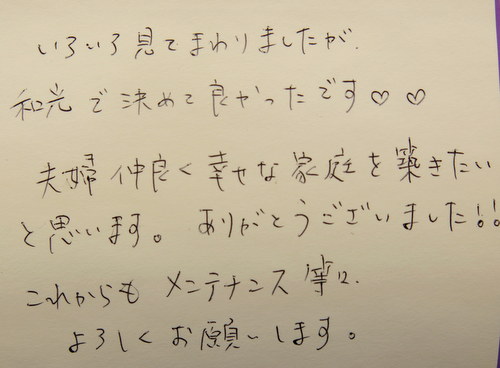 いろいろ見てまわりましたが、
和光で決めて良かったです♡♡
夫婦仲良く幸せな家庭を築きたい
と思います。ありがとうございました!!
これからもメンテナンス等に
よろしくお願いします。